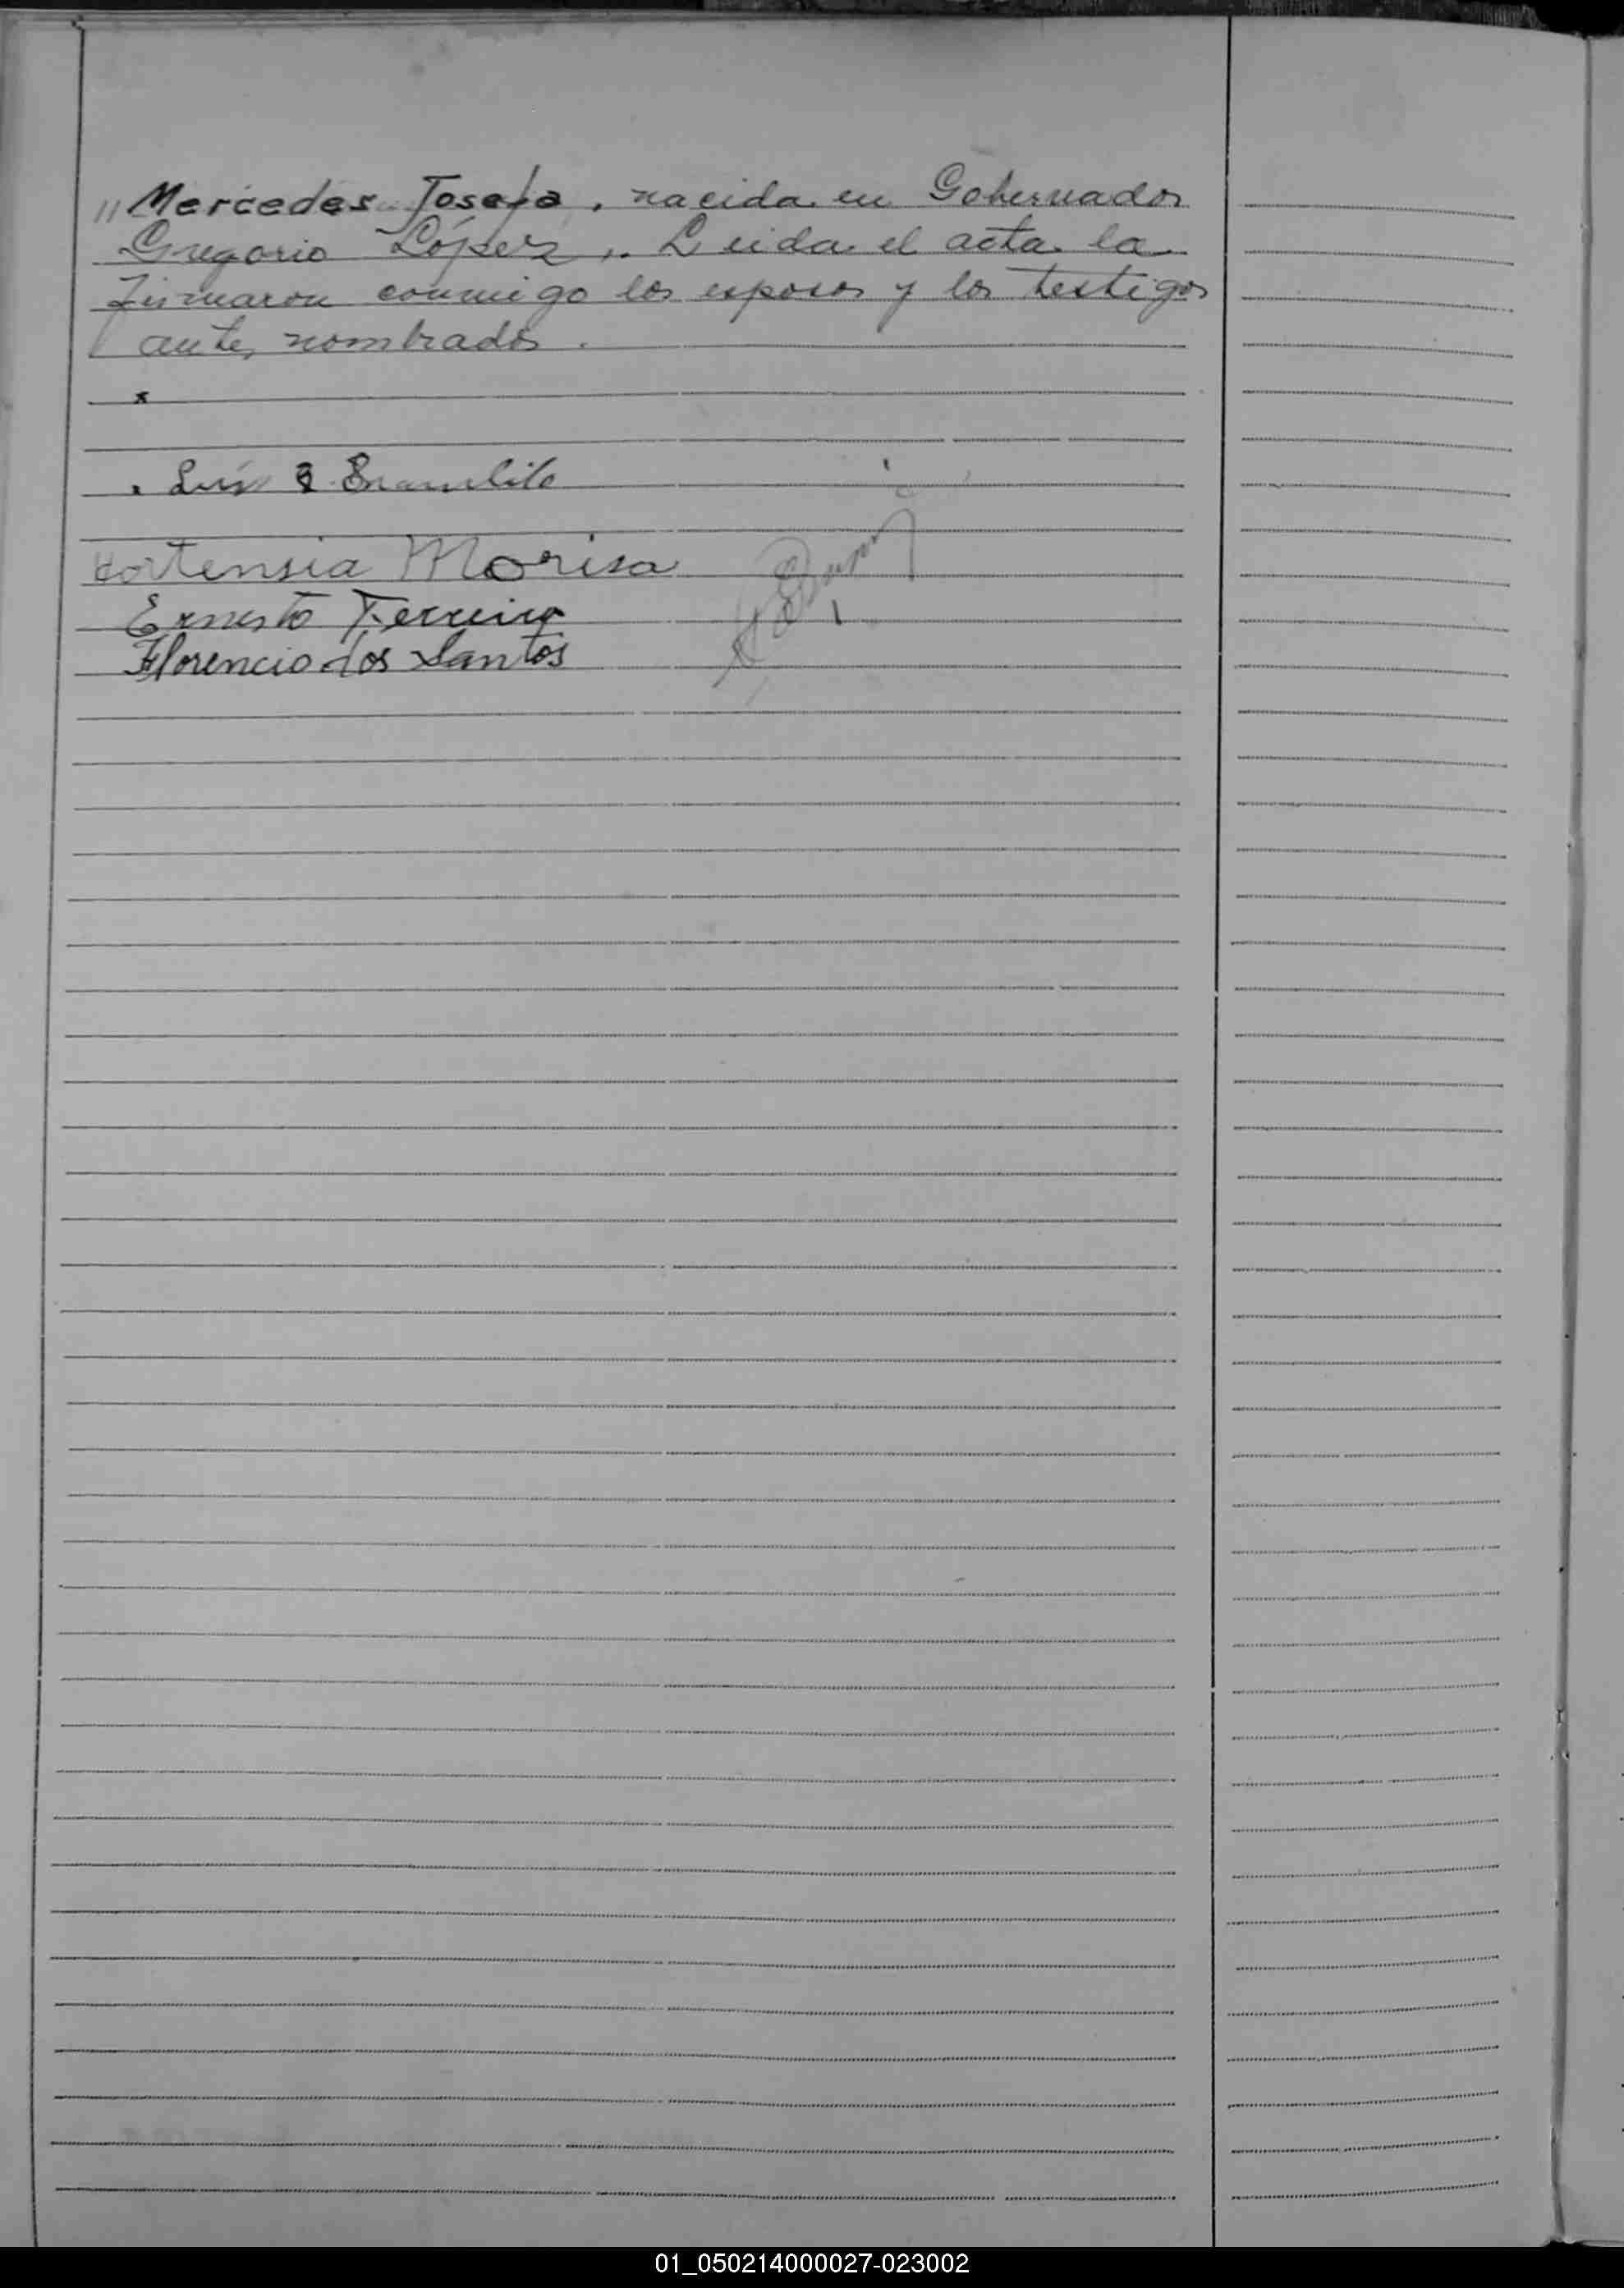 " Mercedes Josefa, nacida en Gobernador
Gregorio López". Leida el acta la
firmaron conmigo los esposos y los testigos
antes nombrados.
x
Luis
Hortensia Morisa
Ernesto Ferreira
Florencio dos Santos
01_050214000027-023002